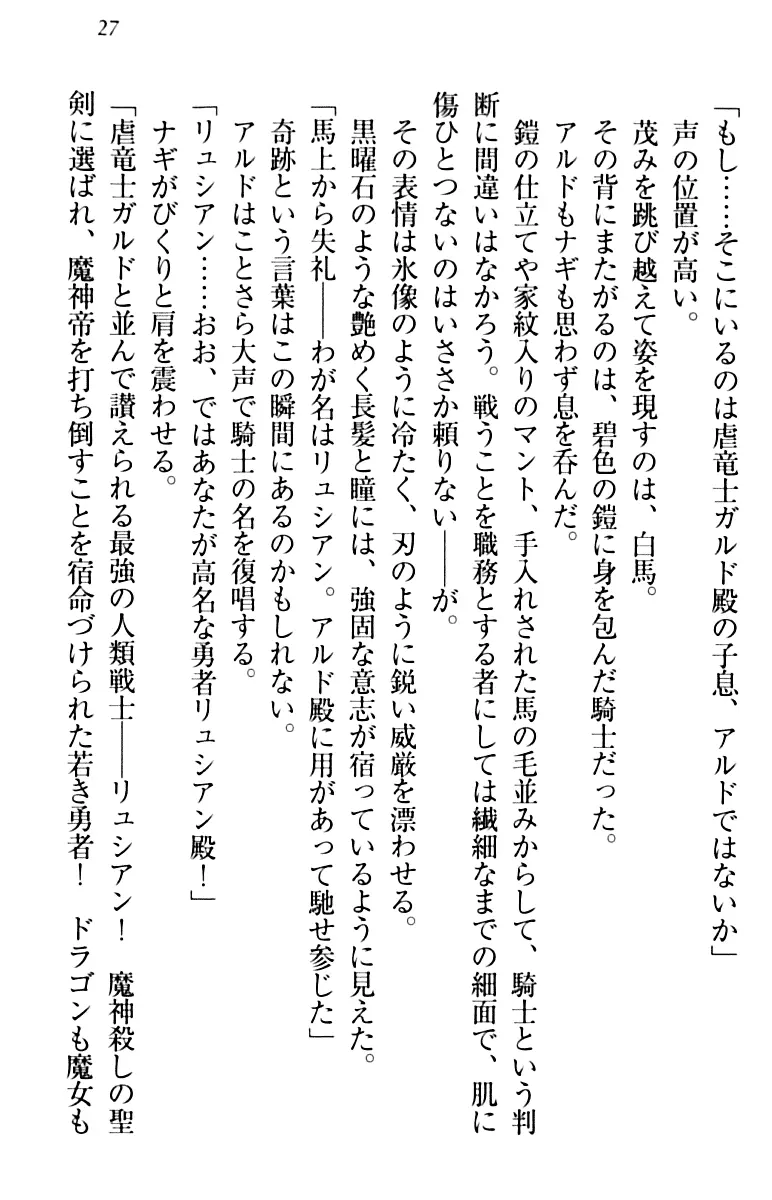 27
「もし……そこにいるのは虐竜士ガルド殿の子息、アルドではないか」
声の位置が高い。
茂みを跳び越えて姿を現すのは、白馬。
その背にまたがるのは、碧色の鎧に身を包んだ騎士だった。
アルドもナギも思わず息を呑んだ。
鎧の仕立てや家紋入りのマント、手入れされた馬の毛並みからして、騎士という判
断に間違いはなかろう。戦うことを職務とする者にしては繊細なまでの細面で、肌に
傷ひとつないのはいささか頼りない――が。
その表情は氷像のように冷たく、刃のように鋭い威厳を漂わせる。
黒曜石のような艶めく長髪と瞳には、強固な意志が宿っているように見えた。
「馬上から失礼――わが名はリュシアン。アルド殿に用があって馳せ参じた」
奇跡という言葉はこの瞬間にあるのかもしれない。
アルドはことさら大声で騎士の名を復唱する。
「リュシアン……おお、ではあなたが高名な勇者リュシアン殿！」
ナギがびくりと肩を震わせる。
「虐竜士ガルドと並んで讃えられる最強の人類戦士――リュシアン！　魔神殺しの聖
剣に選ばれ、魔神帝を打ち倒すことを宿命づけられた若き勇者！　ドラゴンも魔女も